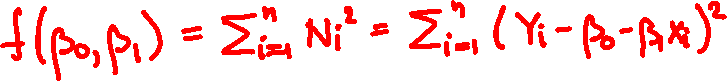 f(β₀,β₁) = Σᵢ₌₁ⁿ Nᵢ² = Σᵢ₌₁ⁿ (Yᵢ-β₀-β₁xᵢ)²